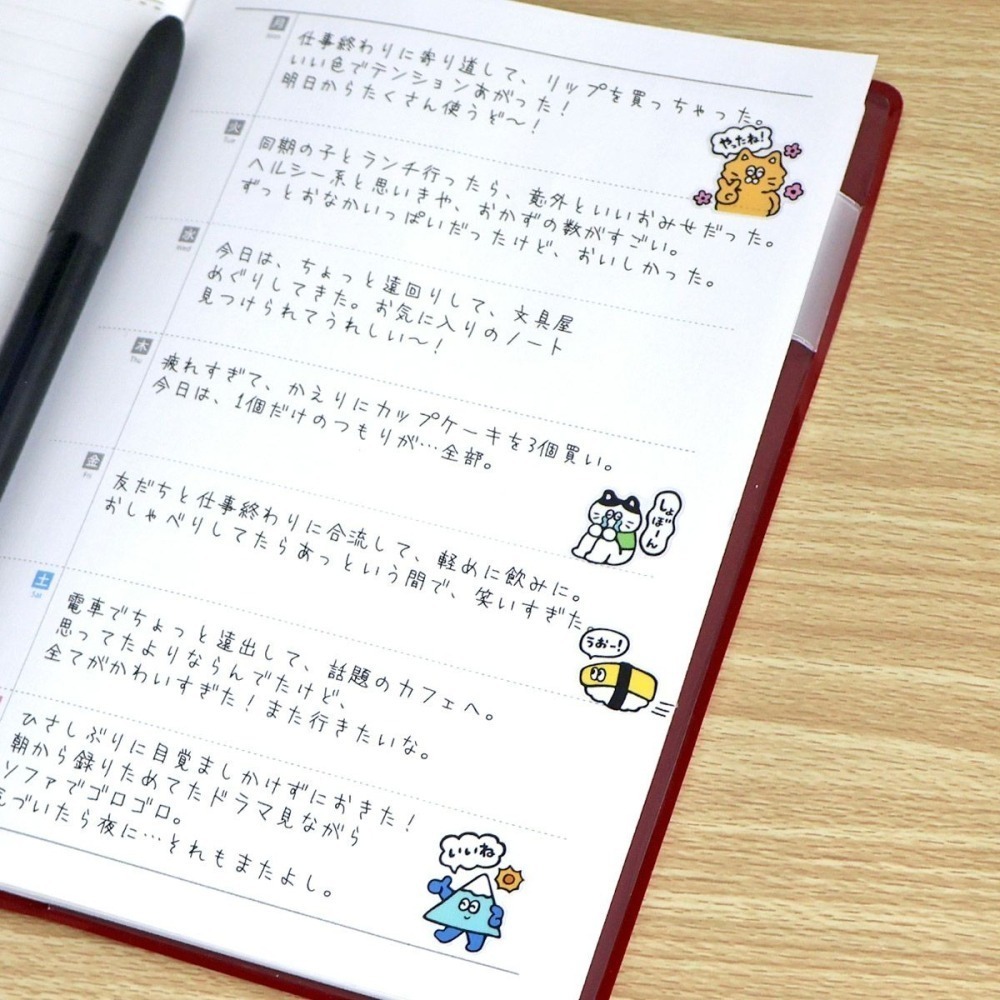 月
Mon
仕事終わりに寄り道して、リップを買っちゃった。
いい色でテンションあがった!
明日からたくさん使うぞ〜!
やったね!
火
Tue
同期の子とランチ行ったら、意外といいおみせだった。
ヘルシー系と思いきや、おかずの数がすごい。
ずっとおなかいっぱいだったけど、おいしかった。
水
Wed
今日は、ちょっと遠回りして、文具屋
めぐりしてきた。お気に入りのノート
見つけられてうれしい〜!
木
Thu
疲れすぎて、かえりにカップケーキを3個買い。
今日は、1個だけのつもりが…全部。
しょぼーん
金
Fri
友だちと仕事終わりに合流して、軽めに飲みに。
おしゃべりしてたらあっという間で、笑いすぎた。
うおー!
土
Sat
電車でちょっと遠出して、話題のカフェへ。
思ってたよりならんでたけど、
全てがかわいすぎた!また行きたいな。
ひさしぶりに目覚ましかけずにおきた!
朝から録りためてたドラマ見ながら
ソファでゴロゴロ。
気づいたら夜に…それもまたよし。
いいね